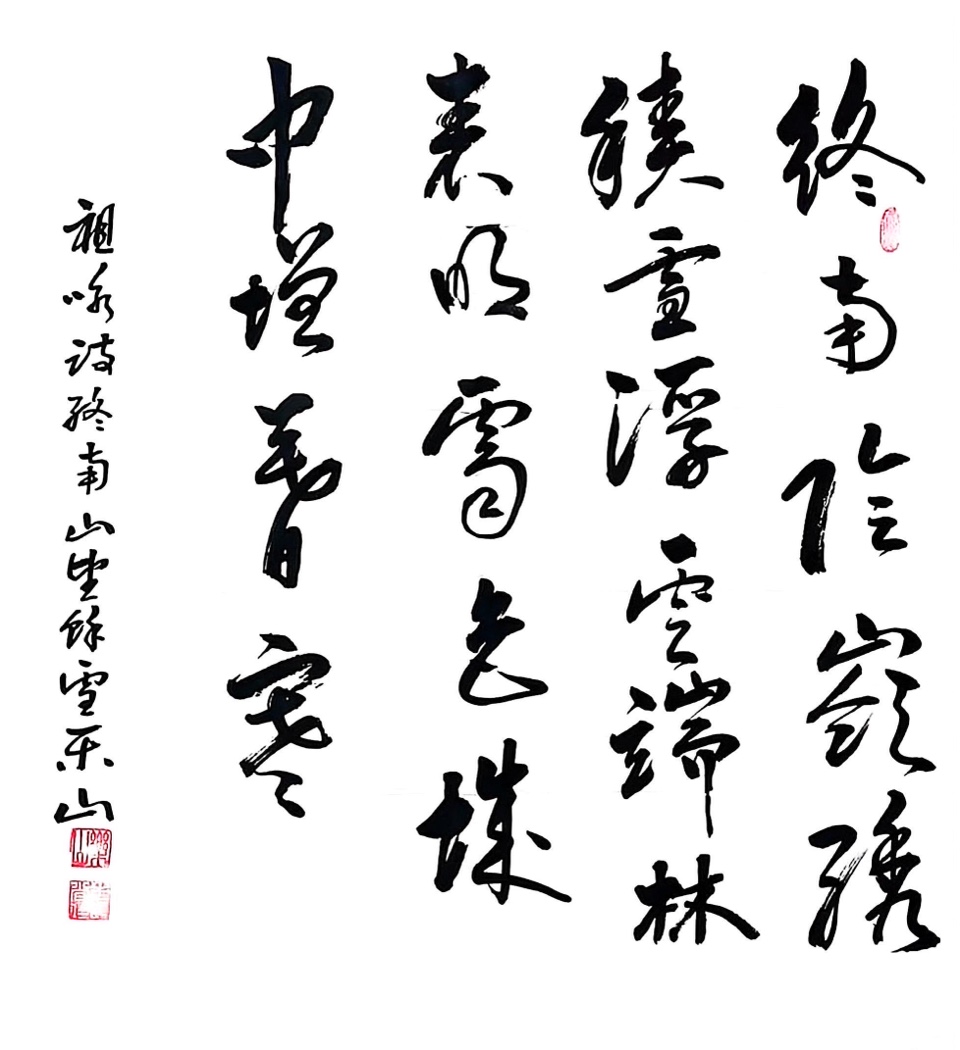 終南陰嶺綉
積雪浮雲端林
表明霽色城
中增暮寒
祖咏詩終南山望餘雪乐山